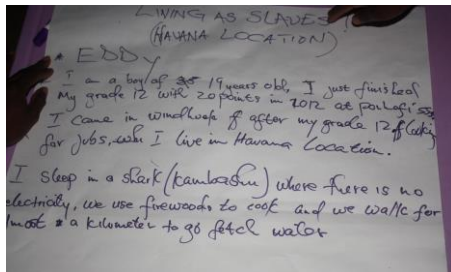 LIVING AS SLAVES !
(HAVANA LOCATION)
* EDDY
I am a boy of 19 years old, I just finished
my grade 12 with 20 points in 2012 at
I came in windhoek after my grade 12
for jobs, I live in Havana Location.
I sleep in a shark (kambashu) where there is no
electricity, we use firewoods to cook and we walk for
lmost a kilometer to go fetch water